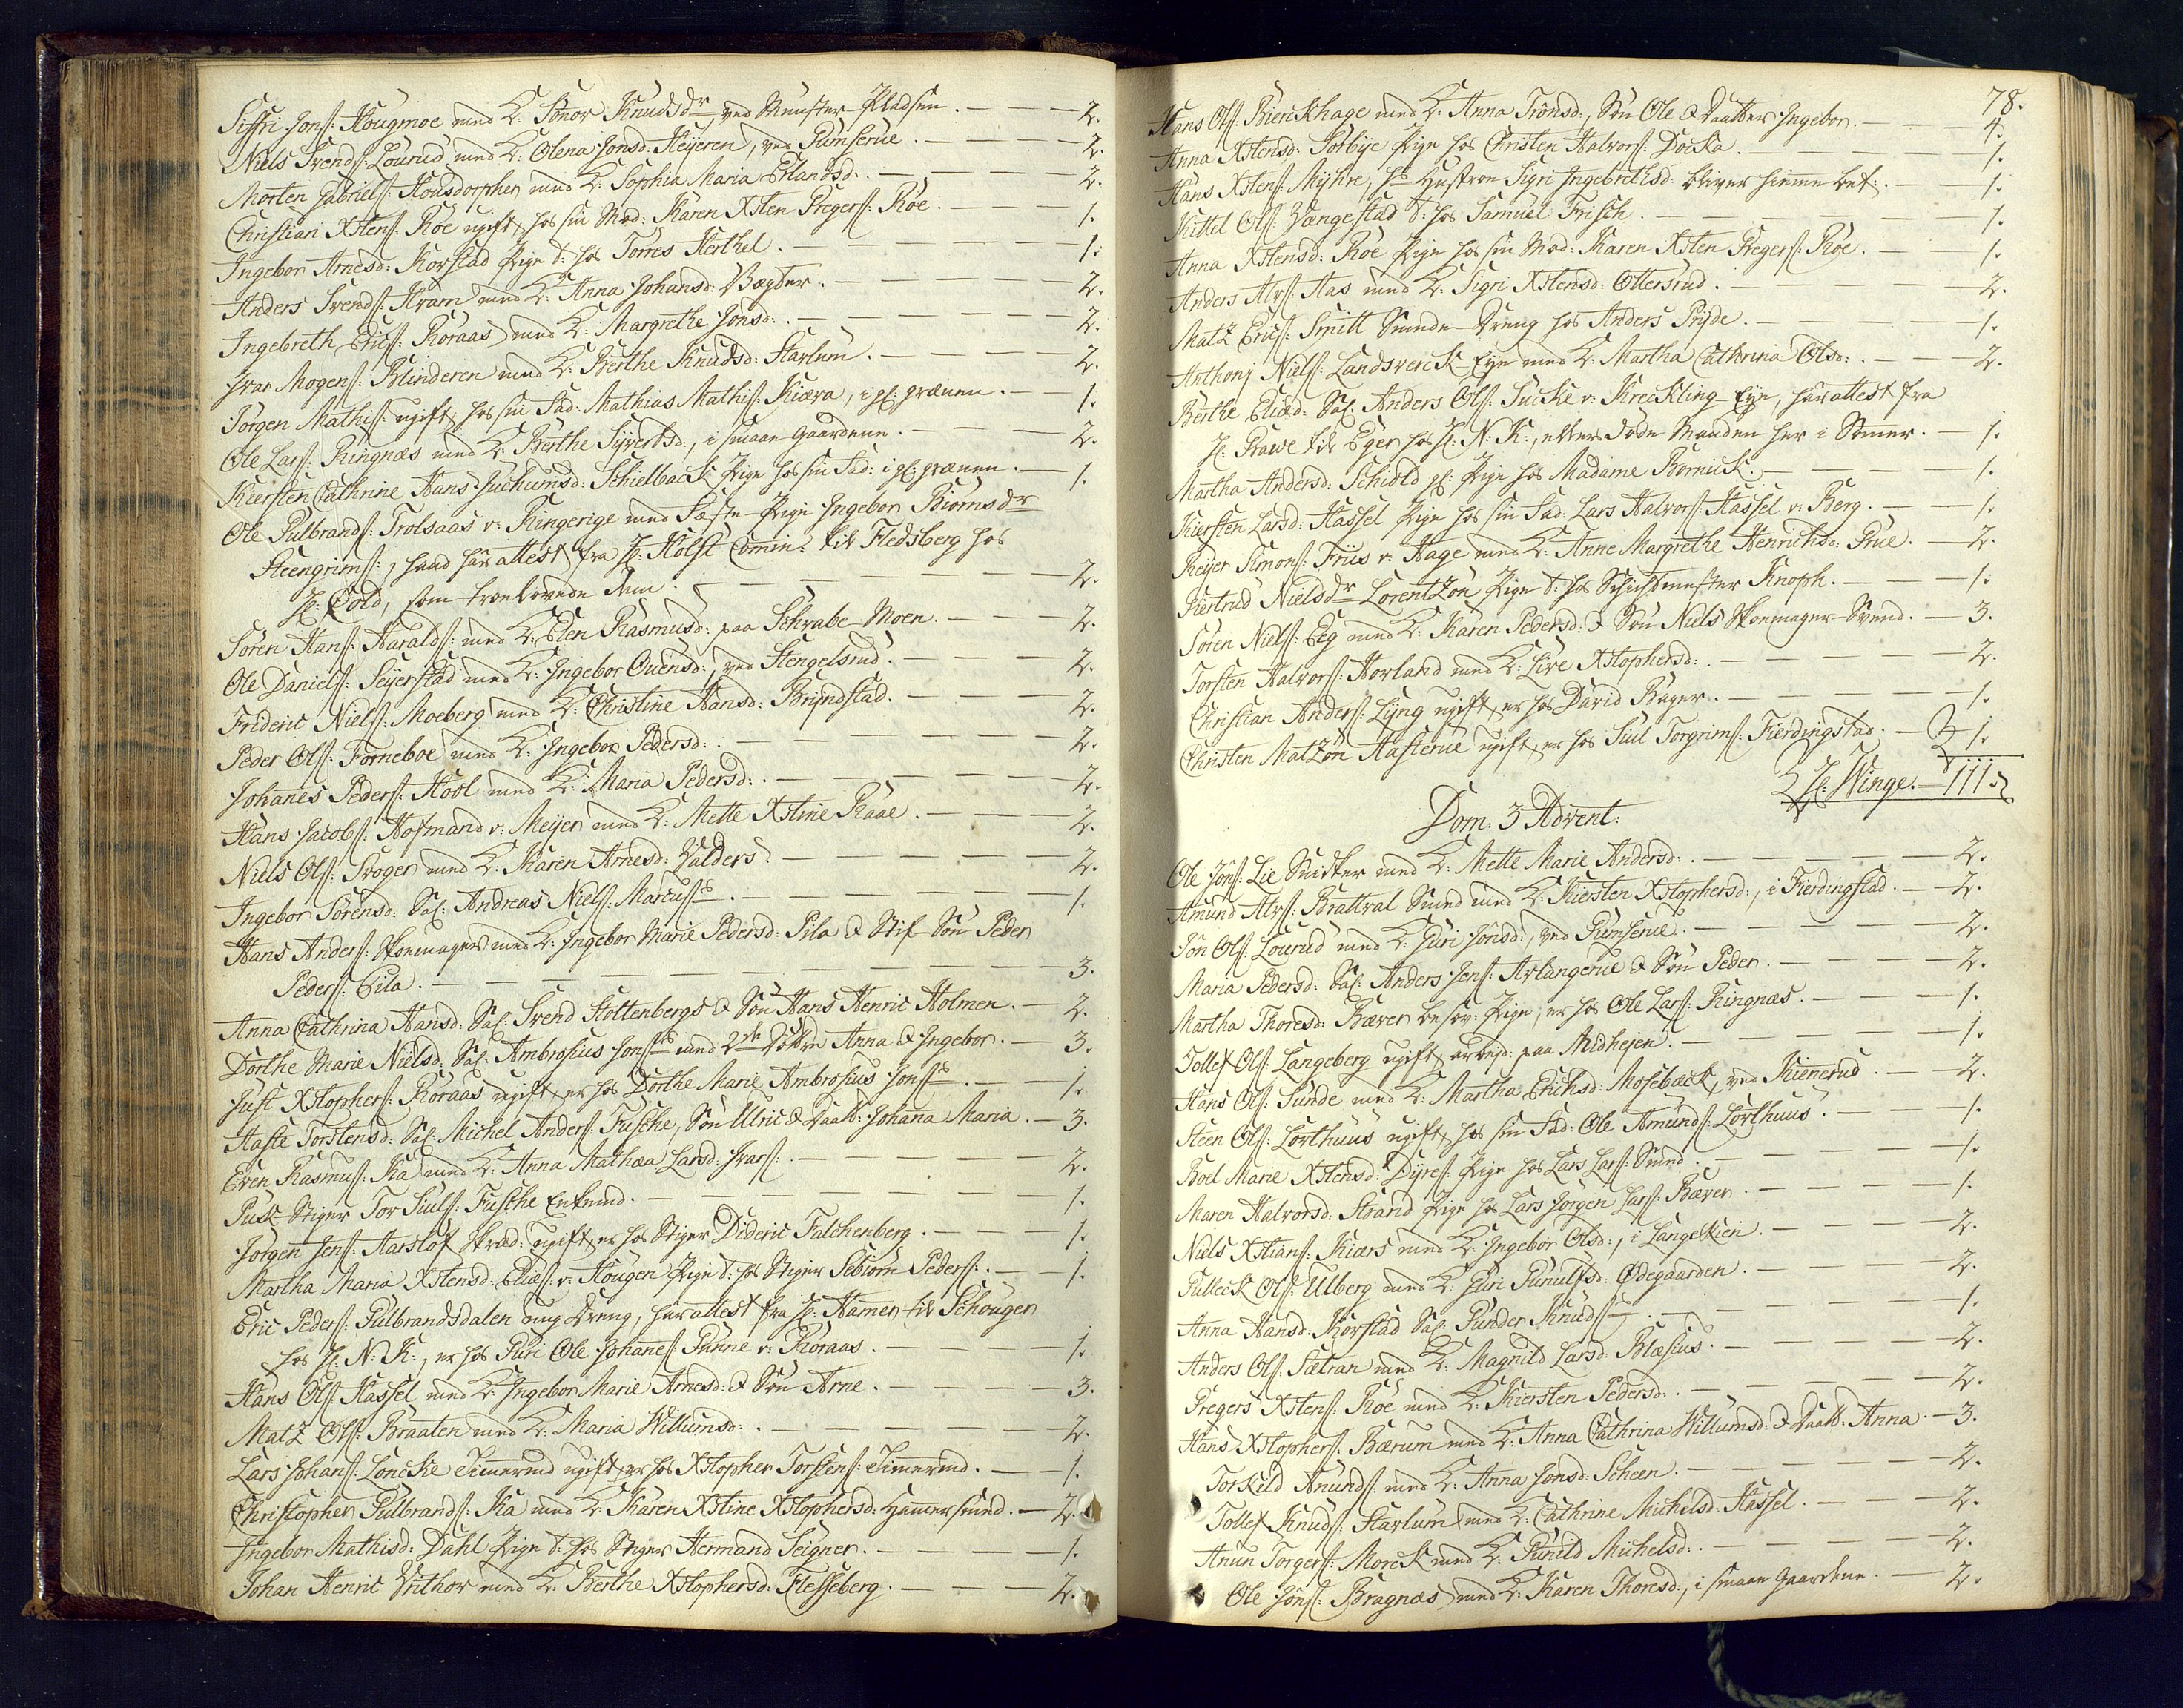 Siffri Jons: Hougmoe med K: Tônor Knudsdr ved Mønster-Pladsen. — 2.
Niels Svends: Lourud med K: Olena Jonsd: Heyeren, ved Gumserue. — 2.
Morten Gabriels: Honsdorpher med K: Sophia Maria Erlandsd: — 2.
Christian Xstens: Roe ugift, hos sin Mod: Karen Xsten Gregers: Roe. — 1.
Ingebor Arnesd: Korstad Pige t: hos Torres Herthel. — 1.
Anders Svends: Hvam med K: Anna Johansd: Vægter. — 2.
Ingebreth Erics: Roraas med K: Margrethe Jonsd: — 2.
Ivar Mogens: Blinderen med K: Berthe Knudsd: Starlum. — 2.
Jørgen Mathis: ugift, hos sin Fad: Mathias Mathis: Kiæra, i gl: grænen. — 1.
Ole Lars: Ringnæs med K: Berthe Syvertsd:, i smaae Gaardene. — 2.
Kiersten Cathrine Hans Juchumsd: Schielback Pige hos sin Fad: i gl: grænen. — 1.
Ole Gulbrands: Trolsaas v: Ringerige med Fæste-Pige Ingebor Biørnsdr
Steengrims:, hand har attest fra H: Holst Comin: til Fledsberg hos
H: Cold, som troelovede dem. — 2.
Søren Hans: Haralds: med K: Elen Rasmusd: paa Schrabe-Moen. — 2.
Ole Daniels: Seyerstad med K: Ingebor Ouensd:, ved Stengelsrud. — 2.
Frideric Niels: Moeberg med K: Christine Hansd: Bryndstad. — 2.
Peder Ols: Forneboe med K: Ingebor Pedersd: — 2.
Johanes Peders: Hool med K: Maria Pedersd: — 2.
Hans Jacobs: Hofmand v: Meyer med K: Mette Xstine Raae. — 2.
Niels Ols: Froger med K: Karen Arnesd: Valders. — 2.
Ingebor Sørensd: Sal: Andreas Niels: Marcuss. — 1.
Hans Anders: Skoemager med K: Ingebor Marie Pedersd: Pila & Stif-Søn Peder
Peders: Pila. — 3.
Anna Cathrina Hansd: Sal: Svend Stottenbergs & Søn Hans Henric Holmen. — 2.
Dorthe Marie Nielsd: Sal: Ambrosius Jons: med 2de Døttre Anna & Ingebor. — 3.
Just Xstophers: Roraas ugift, er hos Dorthe Marie Ambrosius Jons: — 1.
Haste Torstensd: Sal: Michel Anders: Fusche, Søn Ulric & Daat: Johana Maria. — 3.
Even Rasmus: Ka med K: Anna Mathea Larsd: Ivars: — 2.
Puk Stiger Tor Siuls: Fusche Enkemd. — 1.
Jørgen Jens: Aarsløf Skræd: ugift, er hos Stiger Dideric Falchenberg. — 1.
Martha Maria Xstensd: Elies: v: Hougen Pige t: hos Stiger Sebiørn Peders: — 1.
Eric Peders: Gulbrandsdalen ung Dreng, har attest fra H: Hamer til Schouger
hos H: N: K:, er hos Guri Ole Johanes: Gunne v: Roraas. — 1.
Hans Ols: Hassel med K: Ingebor Marie Arnesd: & Søn Arne. — 3.
Matz Ols: Braaten med K: Maria Willumsd: — 2.
Lars Johans: Loncke Timermd ugift, er hos Xstopher Torstens: Timermd. — 1.
Christopher Gulbrands: Ka med K: Karen Xstine Xstophersd: Hamersmed. — 2.
Ingebor Mathisd: Dahl Pige t: hos Stiger Hermand Seigner. — 1.
Johan Henric Vrithor med K: Berthe Xstophersd: Flesseberg. — 2.
78.
Hans Ols: Bierckhage med K: Anna Tronsd:, Søn Ole & Daatter Ingebor. — 4.
Anna Xstensd: Sørbye Pige hos Christen Halvors: Docka. — 1.
Hans Xstens: Myhre, hs Hustroe Sigri Ingebrethsd: bliver hieme bet: — 1.
Kittel Ols: Vængestad t: hos Samuel Frisch. — 1.
Anna Xstensd: Roe Pige hos sin Mod: Karen Xsten Gregers: Roe. — 1.
Anders Alvs: Aas med K: Sigri Xstensd: Ottersrud. — 2.
Matz Erics: Smitt Smede-Dreng hos Anders Pryde. — 1.
Anthonj Niels: Landsverck Eye med K: Martha Cathrina Olsd: — 2.
Berthe Eliæd: Sal: Anders Ols: Sucke v: Kreckling-Eye, har attest fra
H: Grave til Eger hos H: N: K:, efter døde Manden her i Somer. — 1.
Martha Andersd: Schiold gl: Pige hos Madame Børnick. — 1.
Kiersten Larsd: Hassel Pige hos sin Fad: Lars Halvors: Hassel v: Berg. — 1.
Reyer Simons: Friis v: Hage med K: Anne Margrethe Henrichsd: Grue. — 2.
Giertrud Nielsdr Lorentzon Pige t: hos Schichtmester Knoph. — 1.
Søren Niels: Eeg med K: Karen Pedersd: & Søn Niels Skoemager-Svend. — 3.
Torsten Halvors: Horland med K: Live Xstophersd: — 2.
Christian Anders: Lyng ugift, er hos David Bager. — 1.
Christen Matzøn Hasterue ugift, er hos Siul Torgrims: Fierdingstad. — 1.
H: Winge. — 111.
Dom: 3 Advent:
Ole Jons: Lie Snidker med K: Mette Marie Andersd: — 2.
Amund Alvs: Brattval Smed med K: Kiersten Xstophersd:, i Fierdingstad. — 2.
Jon Ols: Lourud med K: Guri Jonsd:, ved Gumserue. — 2.
Maria Pedersd: Sal: Anders Jens: Arlangerue & Søn Peder. — 2.
Martha Thoresd: Bæver besov: Pige, er hos Ole Lars: Ringnæs. — 1.
Tollef Ols: Langeberg ugift, arbejd: paa Midhejen. — 1.
Hans Ols: Sunde med K: Martha Erichsd: Mosebæck, ved Kiennerud. — 2.
Steen Ols: Lorthuus ugift, hos sin Fad: Ole Amunds: Lorthuus. — 1.
Boel Marie Xstensd: Dyres: Pige hos Lars Lars: Smed. — 1.
Maren Halvorsd: Strand Pige hos Lars Jørgen Lars: Bæver. — 1.
Niels Xstians: Kiærs med K: Ingebor Olsd:, i Langekien. — 2.
Gulleck Ols: Ulberg med K: Guri Gunulfsd: Ødegaarden. — 2.
Anna Hansd: Korstad Sal: Gunder Knuds: — 1.
Anders Ols: Sætran med K: Magnild Larsd: Blæsius. — 2.
Gregers Xstens: Roe med K: Kiersten Pedersd: — 2.
Hans Xstophers: Bærum med K: Anna Cathrina Willumsd: & Daatt: Anna. — 3.
Torkeld Anunds: med K: Anna Jonsd: Scheen. — 2.
Tollef Knuds: Starlum med K: Cathrine Michelsd: Hassel. — 2.
Anun Torgers: Morck med K: Gunild Michelsd: — 2.
Ole Jons: Bragnæs med K: Karen Thoresd:, i smaae Gaardene. — 2.